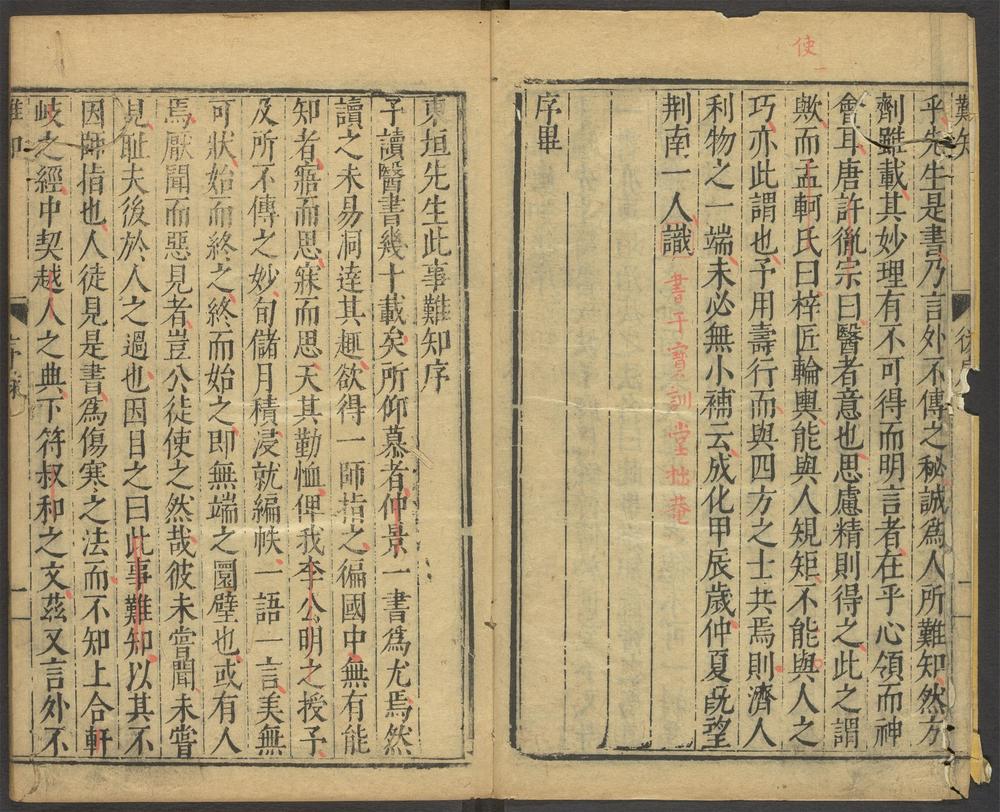 使
難知
乎先生是書乃言外不傳之秘誠爲人所難知然方
劑雖載其妙理有不可得而明言者在乎心領而神
會耳唐許胤宗曰醫者意也思慮精則得之此之謂
歟而孟軻氏曰梓匠輪輿能與人規矩不能與人之
巧亦此謂也予用壽行而與四方之士共焉則濟人
利物之一端未必無小補云成化甲辰歲仲夏既望
荆南一人識
書于寶訓堂拙菴
序畢
東垣先生此事難知序
予讀醫書幾十載矣所仰慕者仲景一書爲尤焉然
讀之未易洞達其趣欲得一師指之徧國中無有能
知者寤而思寐而思天其勤恤俾我李公明之授予
及所不傳之妙旬儲月積浸就編帙一語一言美無
可狀始而終之終而始之即無端之圜璧也或有人
焉厭聞而惡見者豈公徒使之然哉彼未嘗聞未嘗
見恥夫後於人之過也因目之曰此事難知以其不
因師指也人徒見是書爲傷寒之法而不知上合軒
岐之經中契越人之典下符叔和之文茲又言外不